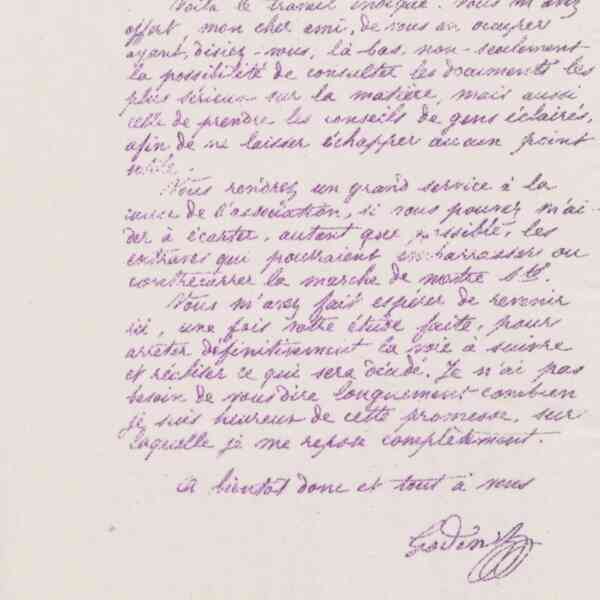 Voilà le travail indiqué. Vous m'avez
offert, mon cher ami, de vous en occuper
ayant, disiez-vous, là-bas non-seulement
la possibilité de consulter les documents les
plus sérieux sur la matière, mais aussi
celle de prendre les conseils de gens éclairés,
afin de ne laisser échapper aucun point
utile.
Vous rendrez un grand service à la
cause de l'association, si vous pouvez m'ai-
der à écarter, autant que possible, les
entraves qui pourraient embarrasser ou
contrecarrer la marche de notre Sté.
Vous m'avez fait espérer de revenir
ici, une fois votre étude faite, pour
arrêter définitivement la voie à suivre
et réaliser ce qui sera décidé. Je n'ai pas
besoin de vous dire longuement combien
je suis heureux de cette promesse, sur
laquelle je me repose complètement.
A bientôt donc et tout à vous
Godin